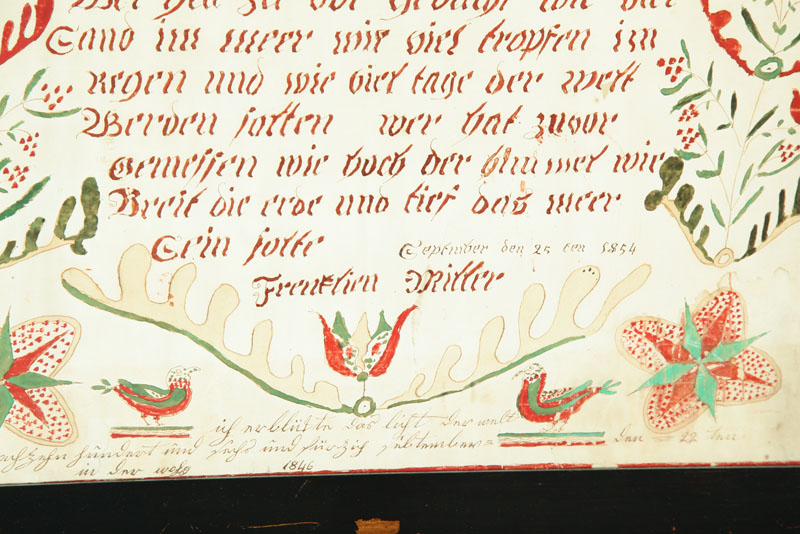 Wer hat zu vor Gedacht wie viel
Sand im meer wie viel tropfen im
Regen und wie viel tage der welt
Werden solten wer hat zuvor
Gemessen wie hoch der himmel wie
Breit die erde und tief das meer
Sein solte
September den 25 ten 1854
Frenklien Miller
ich erblickte das licht der welt
achzehn hundert und sechs und fürzich September= den 22 ten
in der 1846